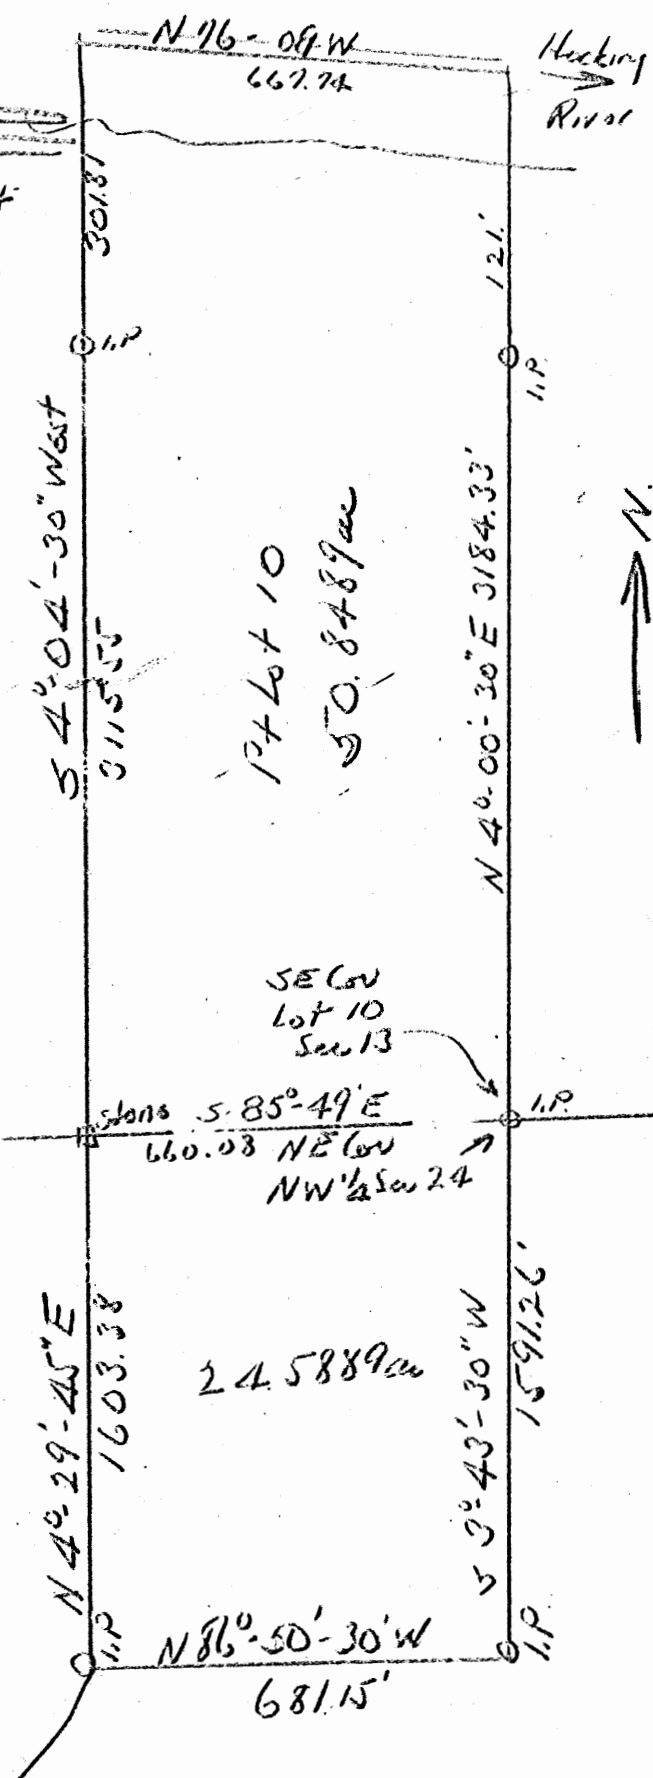 N 76 - 09 W
667.74
Hocking
River
301.81
121.'
I.P.
I.P.
S 4°-04'-30" West
3115.55
Pt Lot 10
50.8489 ac
N 4°-00'-30" E 3184.33'
N.
SE Cor
Lot 10
Sec 13
I.P.
stone S. 85°-49' E
660.08 NE Cor
NW 1/4 Sec 24
N 4°-29'-45" E
1603.38
24.5889 ac
S 3°-43'-30" W
1591.26'
I.P.
N 86°-50'-30' W
681.15'
I.P.